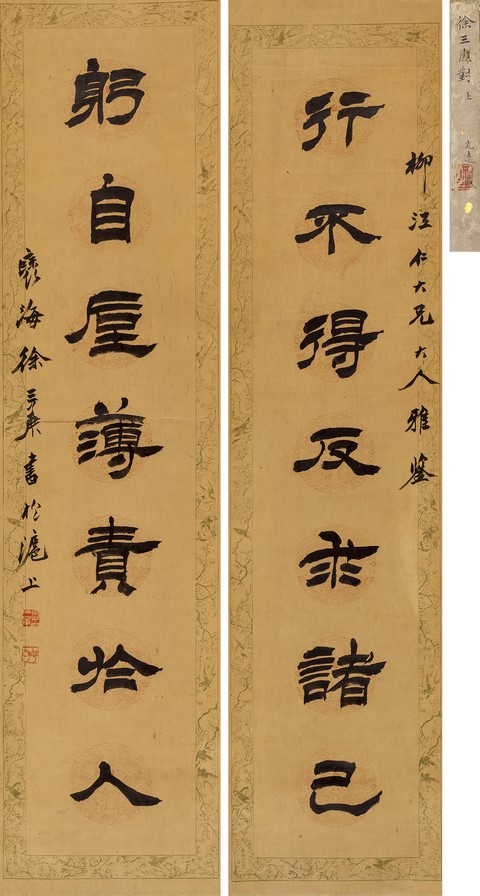 徐三庚對 上
柳仁大兄大人雅鑒
行不得反求諸己
躬自厚薄責於人
褱海徐三庚書於滬上